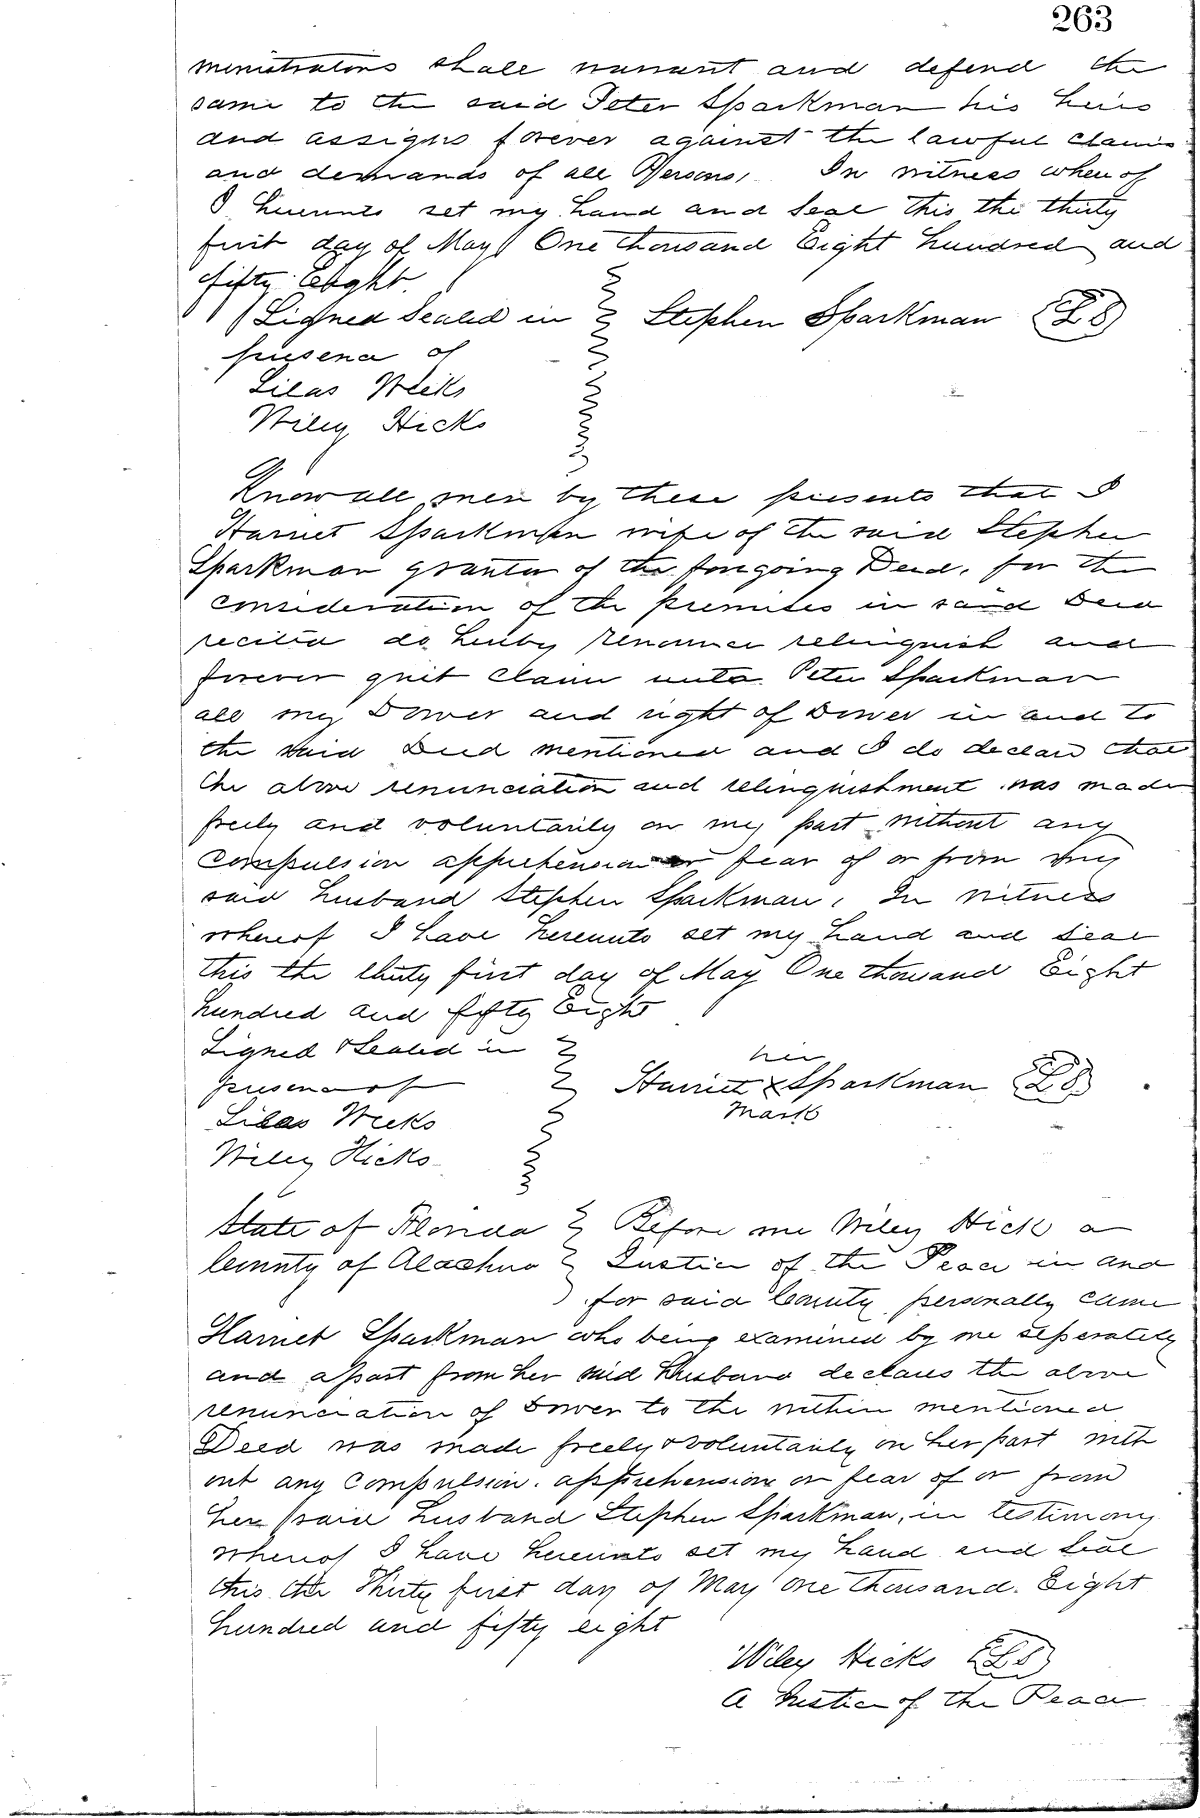 263
ministrators shall warrant and defend the
same to the said Peter Sparkman his heirs
and assigns forever against the lawful claims
and demands of all Persons, In witness whereof
I hereunto set my hand and Seal this the thirty
first day of May One thousand Eight hundred and
fifty Eight.
Signed Sealed in Stephen Sparkman LS
presence of
Silas Weeks
Wiley Hicks
Know all men by these presents that I
Harriet Sparkman wife of the said Stephen
Sparkman grantor of the foregoing Deed, for the
consideration of the premises in said Deed
recited do hereby renounce relinquish and
forever quit claim unto Peter Sparkman
all my Dower and right of Dower in and to
the said Deed mentioned and I do declare that
the above renunciation and relinquishment was made
freely and voluntarily on my part without any
compulsion apprehension or fear of or from my
said husband Stephen Sparkman, In witness
whereof I have hereunto set my hand and seal
this the thirty first day of May One thousand Eight
hundred and fifty Eight
Signed & Sealed in her
presence of Harriet x Sparkman LS
Silas Weeks mark
Wiley Hicks
State of Florida Before me Wiley Hick a
County of Alachua Justice of the Peace in and
for said County personally came
Harriet Sparkman who being examined by me seperately
and apart from her said Husband declares the above
renunciation of Dower to the within mentioned
Deed was made freely & voluntarily on her part with
out any Compulsion. apprehension or fear of or from
her said husband Stephen Sparkman, in testimony
whereof I have hereunto set my hand and Seal
this the Thirty first day of May one thousand. Eight
hundred and fifty eight
Wiley Hicks LS
A Justice of the Peace